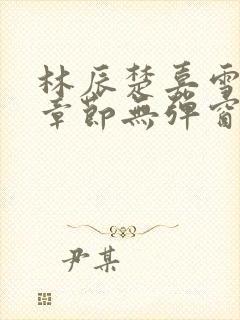 林辰楚嘉雪
章節無彈窗
尹某